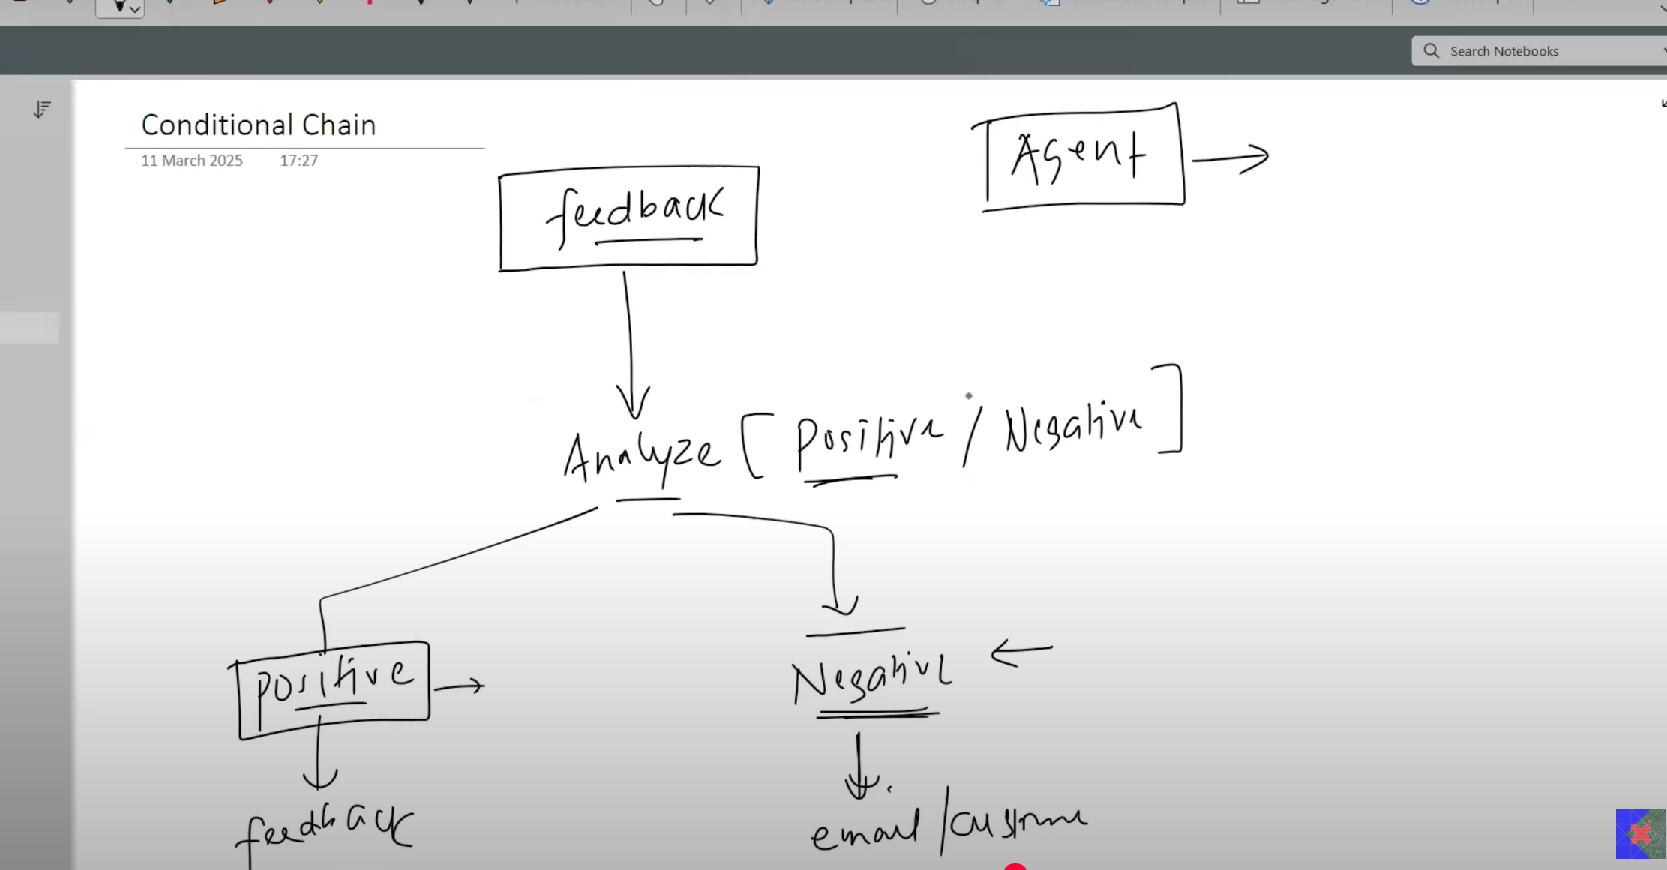 Search Notebooks
Conditional Chain
11 March 2025 17:27
Agent
feedback
Analyze [Positive / Negative]
Positive
Negative
feedback
email /